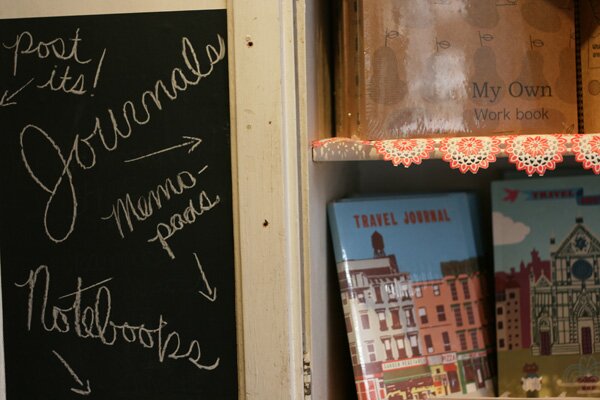 post
its!
Journals
Memo-
pads
Notebooops
My Own
Work book
TRAVEL JOURNAL
TRAVEL